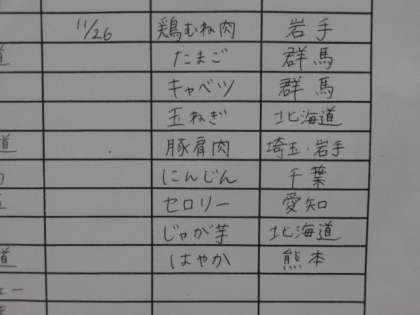 11/26 鶏むね肉 岩手
道 たまご 群馬
キャベツ 群馬
玉ねぎ 北海道
道 豚肩肉 埼玉・岩手
にんじん 千葉
セロリー 愛知
じゃが芋 北海道
道 はやか 熊本
ュー